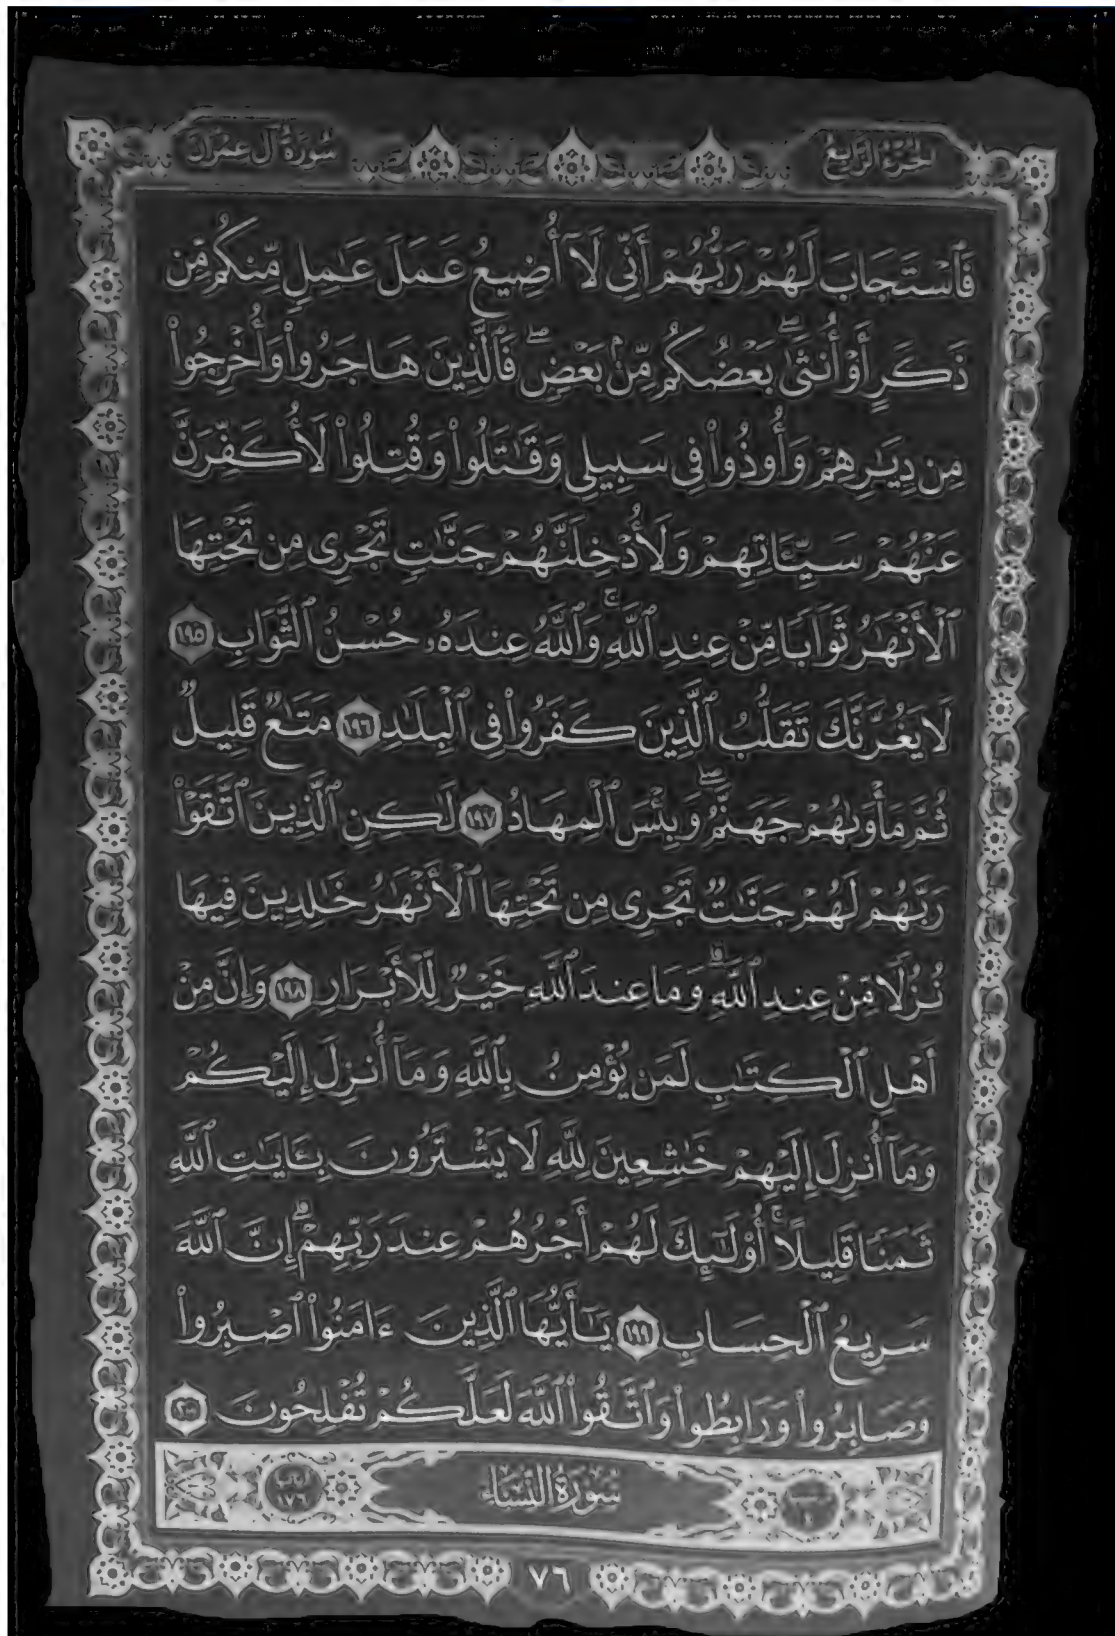 الجزء الرابع
سورة آل عمران
فَٱسْتَجَابَ لَهُمْ رَبُّهُمْ أَنِّى لَآ أُضِيعُ عَمَلَ عَٰمِلٍ مِّنكُم مِّن
ذَكَرٍ أَوْ أُنثَىٰ ۖ بَعْضُكُم مِّنۢ بَعْضٍ ۖ فَٱلَّذِينَ هَاجَرُوا۟ وَأُخْرِجُوا۟
مِن دِيَٰرِهِمْ وَأُوذُوا۟ فِى سَبِيلِى وَقَٰتَلُوا۟ وَقُتِلُوا۟ لَأُكَفِّرَنَّ
عَنْهُمْ سَيِّـَٔاتِهِمْ وَلَأُدْخِلَنَّهُمْ جَنَّٰتٍ تَجْرِى مِن تَحْتِهَا
ٱلْأَنْهَٰرُ ثَوَابًا مِّنْ عِندِ ٱللَّهِ ۚ وَٱللَّهُ عِندَهُۥ حُسْنُ ٱلثَّوَابِ ١٩٥
لَا يَغُرَّنَّكَ تَقَلُّبُ ٱلَّذِينَ كَفَرُوا۟ فِى ٱلْبِلَٰدِ ١٩٦ مَتَٰعٌ قَلِيلٌ
ثُمَّ مَأْوَىٰهُمْ جَهَنَّمُ ۖ وَبِئْسَ ٱلْمِهَادُ ١٩٧ لَٰكِنِ ٱلَّذِينَ ٱتَّقَوْا۟
رَبَّهُمْ لَهُمْ جَنَّٰتٌ تَجْرِى مِن تَحْتِهَا ٱلْأَنْهَٰرُ خَٰلِدِينَ فِيهَا
نُزُلًا مِّنْ عِندِ ٱللَّهِ ۗ وَمَا عِندَ ٱللَّهِ خَيْرٌ لِّلْأَبْرَارِ ١٩٨ وَإِنَّ مِنْ
أَهْلِ ٱلْكِتَٰبِ لَمَن يُؤْمِنُ بِٱللَّهِ وَمَآ أُنزِلَ إِلَيْكُمْ
وَمَآ أُنزِلَ إِلَيْهِمْ خَٰشِعِينَ لِلَّهِ لَا يَشْتَرُونَ بِـَٔايَٰتِ ٱللَّهِ
ثَمَنًا قَلِيلًا ۚ أُو۟لَٰٓئِكَ لَهُمْ أَجْرُهُمْ عِندَ رَبِّهِمْ ۗ إِنَّ ٱللَّهَ
سَرِيعُ ٱلْحِسَابِ ١٩٩ يَٰٓأَيُّهَا ٱلَّذِينَ ءَامَنُوا۟ ٱصْبِرُوا۟
وَصَابِرُوا۟ وَرَابِطُوا۟ وَٱتَّقُوا۟ ٱللَّهَ لَعَلَّكُمْ تُفْلِحُونَ ٢٠٠
سورة النساء
آياتها ١٧٦
٧٦